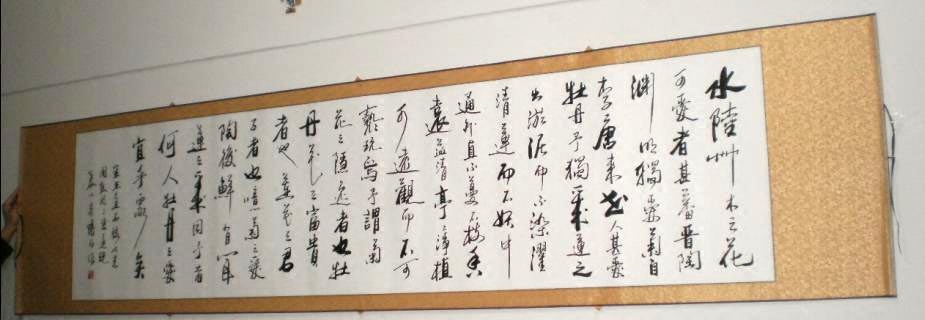 水陸艸木之花
可愛者甚蕃晋陶
淵明獨愛菊自
李唐来世人甚愛
牡丹予獨愛蓮之
出淤泥而不染濯
清蓮而不妖中
通外直不蔓不枝香
遠益清亭亭淨植
可遠觀而不可
褻玩焉予謂菊
花之隱逸者也牡
丹花之富貴
者也蓮花之君
子者也噫菊之愛
陶後鮮有聞
蓮之愛同予者
何人牡丹之愛
宜乎衆矣